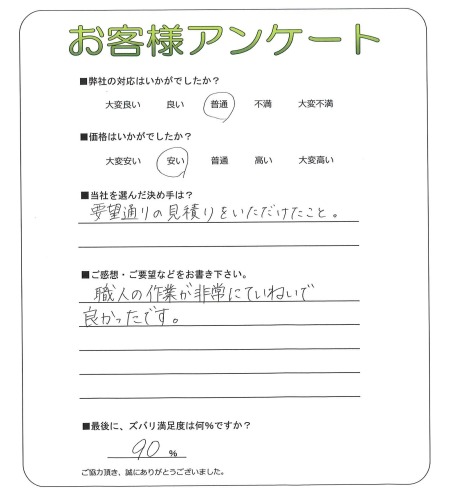 お客様アンケート
■弊社の対応はいかがでしたか？
大変良い 良い 普通 不満 大変不満
■価格はいかがでしたか？
大変安い 安い 普通 高い 大変高い
■当社を選んだ決め手は？
要望通りの見積りをいただけたこと。
■ご感想・ご要望などをお書き下さい。
職人の作業が非常にていねいで
良かったです。
■最後に、ズバリ満足度は何％ですか？
90 ％
ご協力頂き、誠にありがとうございました。